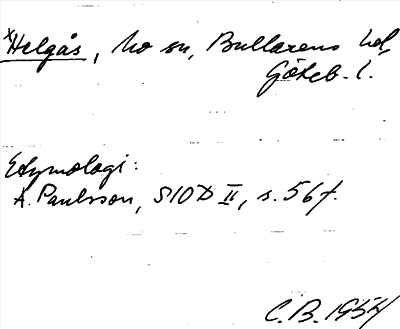 ˣHelgås, Mo sn, Bullarens hd,
Göteb. l.
Etymologi:
A. Paulsson, SIOD II, s. 56 f.
C. B. 1954